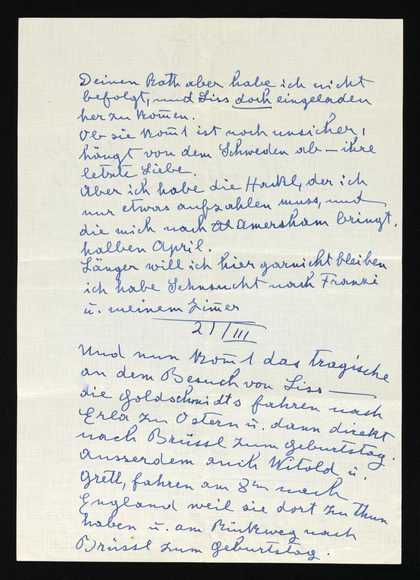 Deinen Rath aber habe ich nicht
befolgt, und Liss doch eingeladen
her zu kom̄en.
Ob sie kom̄t ist noch unsicher,
hängt von dem Schweden ab – ihre
letzte Liebe.
Aber ich habe die Hackl, der ich
nur etwas aufzahlen muss, und
die mich nach Amersham bringt.
halben April.
Länger will ich hier garnicht bleiben
ich habe Sehnsucht nach Franzi
u. meinem Zim̄er
21/III
Und nun kom̄t das tragische
an dem Besuch von Liss –
die Goldschmidts fahren nach
Erla zu Ostern u. dann direkt
nach Brüssl zum Geburtstag.
Ausserdem auch Witold u.
Gretl, fahren am 8ten nach
England weil sie dort zu thun
haben u. am Rückweg nach
Brüssl zum Geburtstag.